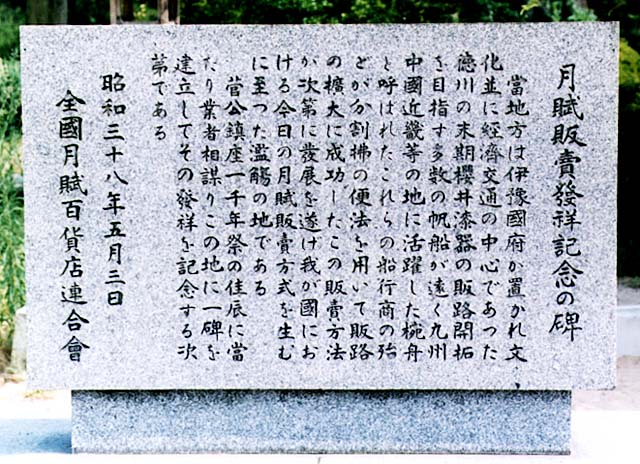 月賦販賣發祥記念の碑
當地方は伊豫國府が置かれ文
化並に經濟交通の中心であつた
德川の末期櫻井漆器の販路開拓
を目指す多数の帆船が遠く九州
中國近畿等の地に活躍した椀舟
と呼ばれたこれらの船行商の殆
どが分割拂の便法を用いて販路
の擴大に成功したこの販賣方法
が次第に發展を遂け我が國にお
ける今日の月賦販賣方式を生む
に至つた濫觴の地である
菅公鎮座一千年祭の佳辰に當
たり業者相謀りこの地に一碑を
建立してその發祥を記念する次
第である
昭和三十八年五月三日
全國月賦百貨店連合會